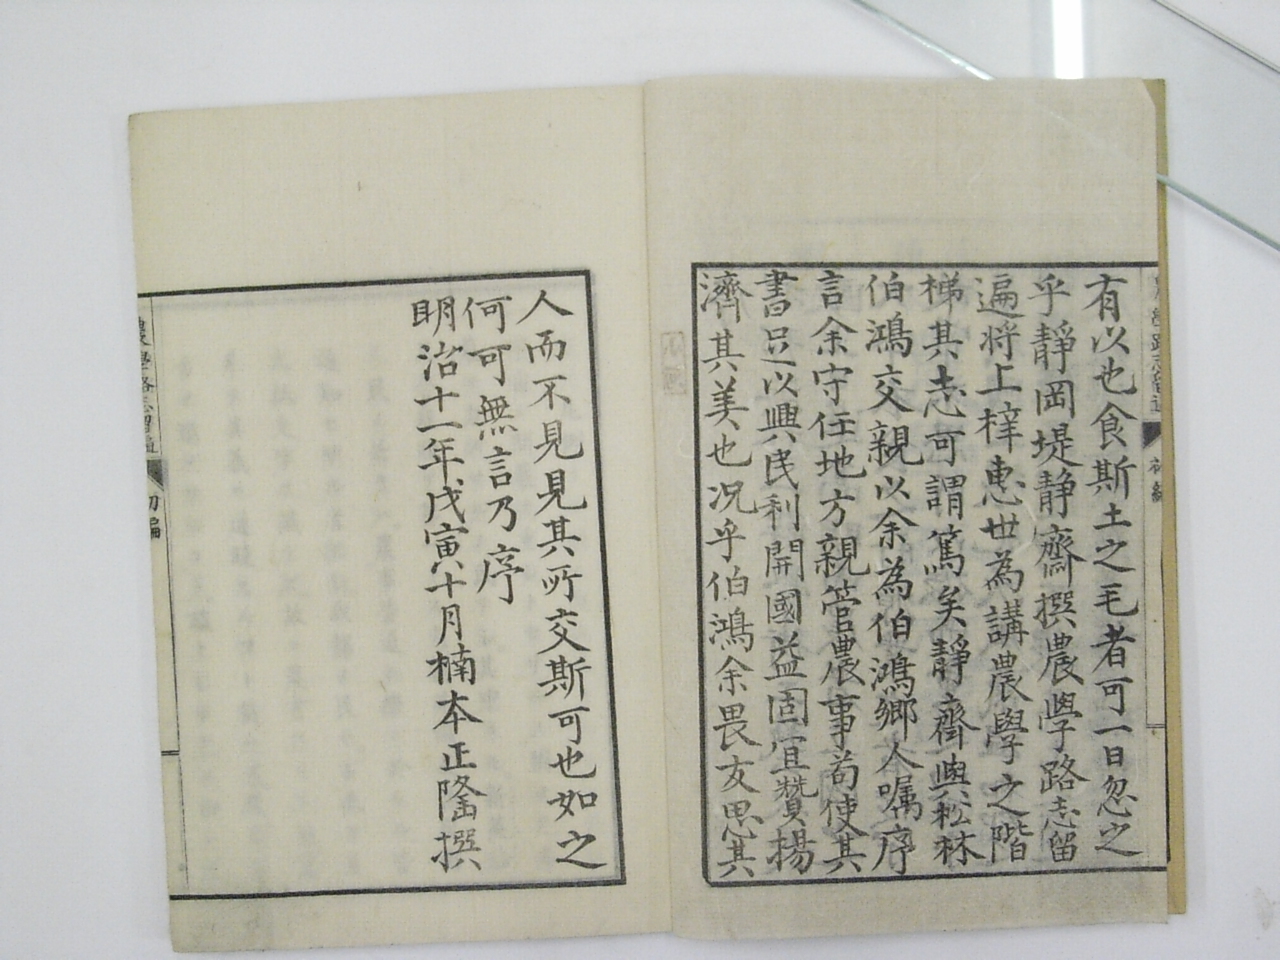 有以也食斯土之毛者可一日忽之
乎靜岡堤靜齋撰農學路志留
遍將上梓惠世為講農學之階
梯其志可謂篤矣靜齋與松林
伯鴻交親以余為伯鴻鄉人囑序
言余守任地方親管農事苟使其
書足以興民利開國益固宜贊揚
濟其美也况乎伯鴻余畏友思其
人而不見見其所交斯可也如之
何可無言乃序
明治十一年戊寅十月楠本正隆撰
農學路志留遍
初編